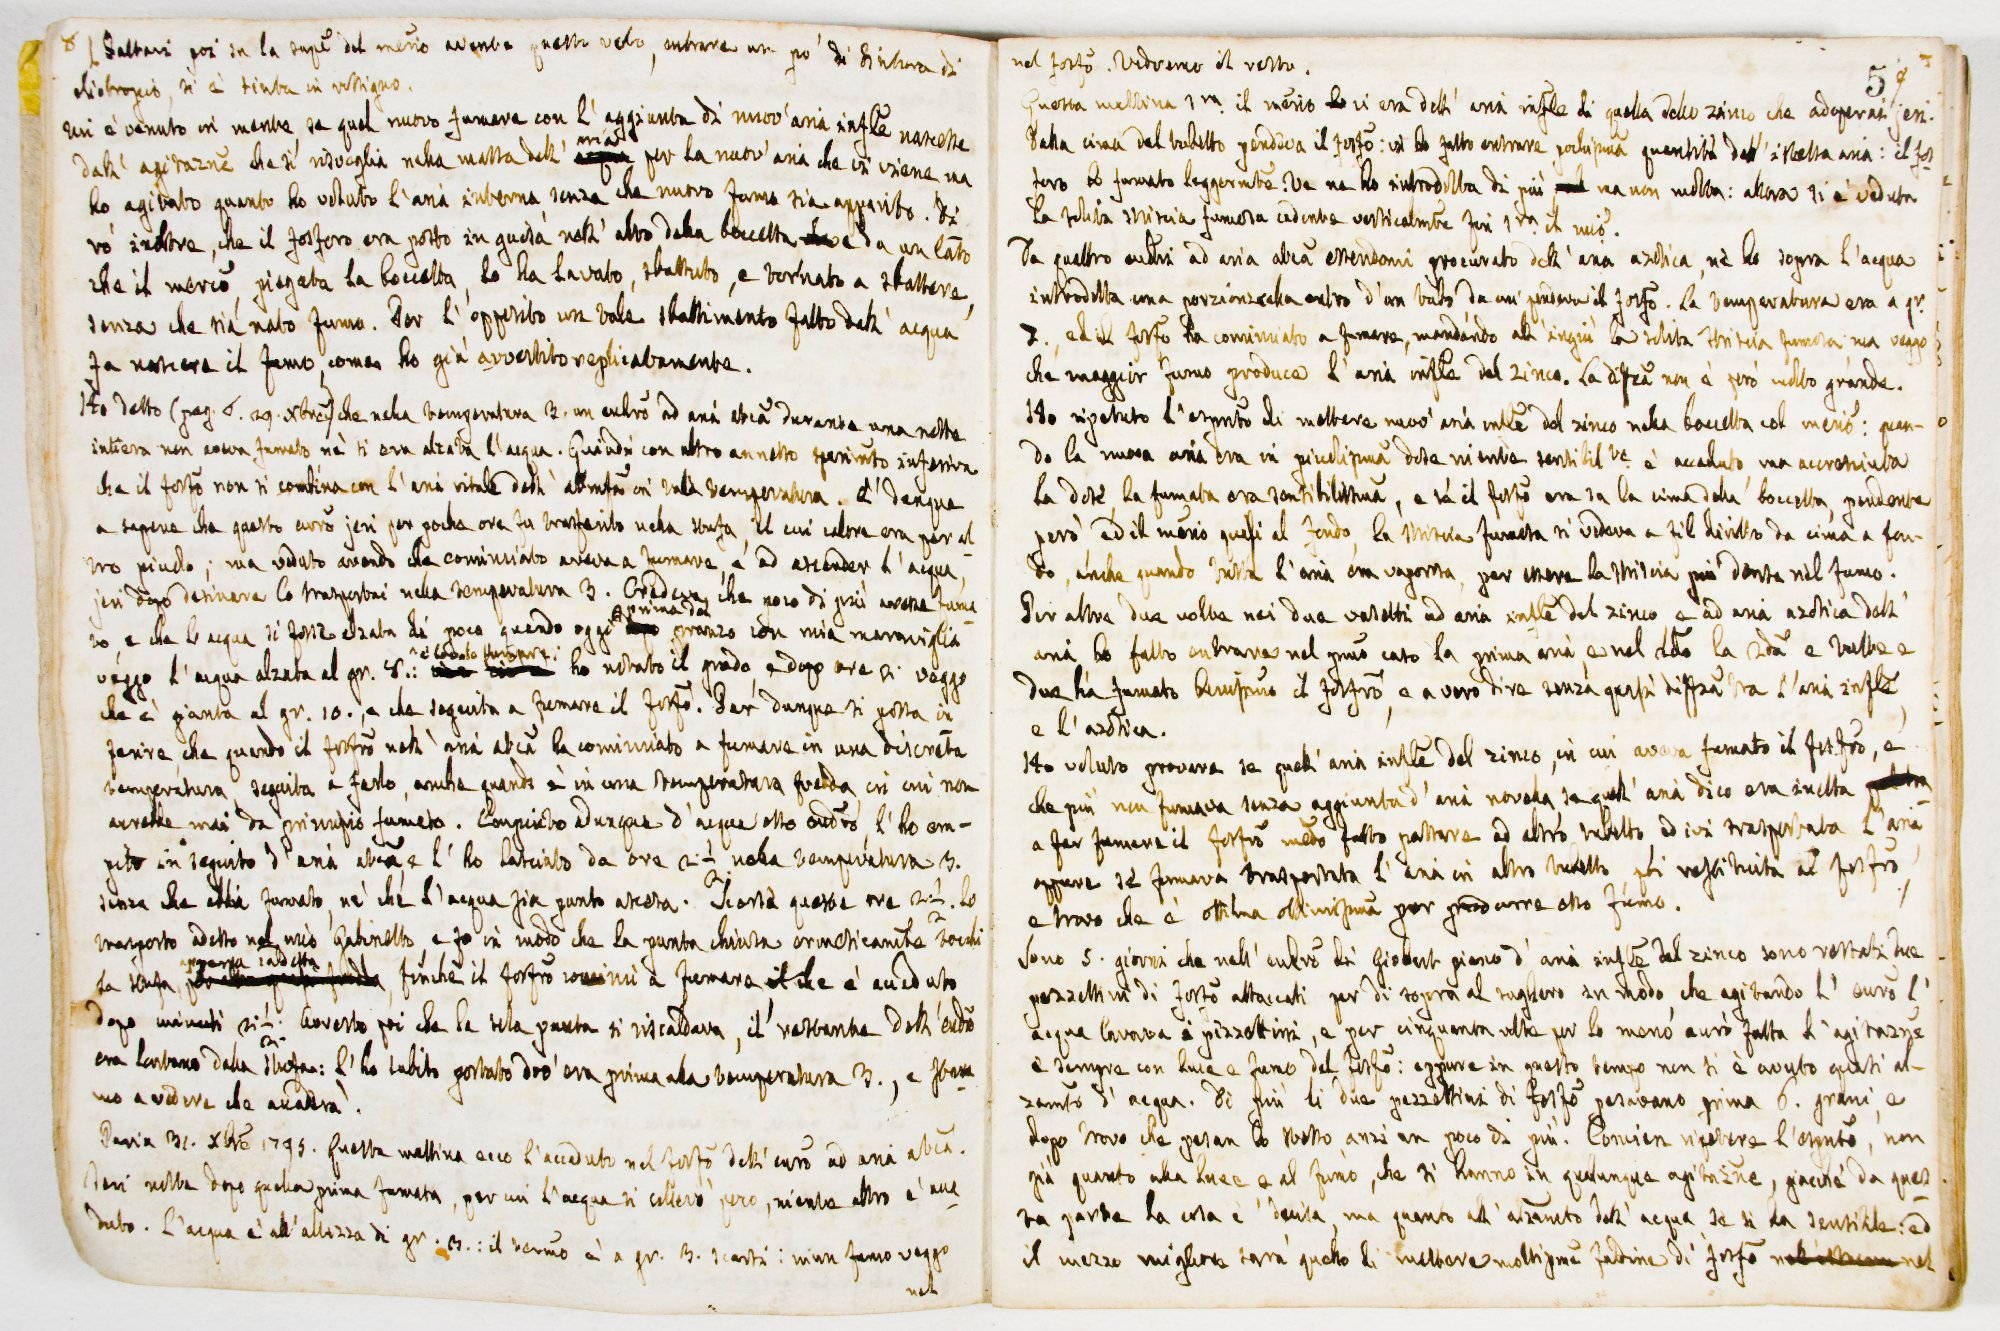 8
Saltavi poi su la supe del merio avente questo velo, entrare un po' di tintura di
eliotropio, si è tinta in rossigno.
Mi è venuto in mente se quel nuovo fumare con l'aggiunta di nuov'aria infle nascesse
dall'agitazne che si risveglia nella massa dell' aria per la nuov'aria che vi viene ma
ho agitato quanto ho voluto l'aria interna senza che nuovo fumo sia apparito. Di
rò inoltre, che il fosforo era posto in guisa nell'alto della boccetta e da un lato
che il mercio, piegata la boccetta, lo ha lavato, sbattuto, e tornato a sbattere,
senza che sia nato fumo. Per l'opposito un tale sbattimento fatto dall'acqua
fa nascere il fumo, come ho già avvertito replicatamente.
Ho detto (pag. 6. 29. Xbre) che nella temperatura 2. un eudro ad aria atca durante una notte
intiera non aveva fumato nè si era alzata l'acqua. Quindi con altro annesso sperimto inferiva
che il fosfo non si combina con l'aria vitale dell' atmosfa in tale temperatura. E' dunque
a sapere che questo euro jeri per poche ore fu trasferito nella stufa, il cui calore era per al-
tro piccolo; ma veduto avendo che cominciato aveva a fumare, e ad ascender l'acqua,
jeri dopo desinare lo trasportai nella temperatura 3. Credeva che poco di più avesse fuma-
to, e che l'acqua si fosse alzata di poco quando oggi prima del pranzo con mia maraviglia
veggo l'acqua alzata al gr. 8.: ho notato il grado, e dopo ore 2. veggo
che è giunta al gr. 10., e che seguita a fumare il fosfo. Par dunque si possa in
ferire, che quando il fosfro nell'aria atca ha cominciato a fumare in una discreta
temperatura, seguita a farlo, anche quando è in una temperatura fredda, in cui non
avrebbe mai da principio fumato. Compiuto adunque d'acqua esso eudro, l'ho em-
pito in seguito d'aria atca, e l'ho lasciato da ore 2 1/2 nella temperatura 3.
senza che abbia fumato, nè che l'acqua sia punto ascesa. Scorse queste ore 2 1/2. lo
trasporto adesso nel mio Gabinetto e fo in modo che la punta chiusa ermeticamte tocchi
la stufa appena caldetta, finchè il fosfro cominci a fumare il che è accaduto
dopo minuti 2 1/2. Avverto poi che la sola punta si riscaldava, il restante dell'eudro
era lontano dalla stufa: l'ho subito portato dov'era prima alla temperatura 3., e staremo
a vedere che accadrà.
Pavia 31. Xbre 1795. Questa mattina ecco l'accaduto nel fosfo dell'euro ad aria atca.
Jeri notte dopo quella prima fumata, per cui l'acqua si sollevò poco, niente altro è acca-
duto. L'acqua è all'altezza di gr. 3.: il termo è a gr. 3. scarsi: niun fumo veggo
nel
nel fosfo. Vedremo il resto.
5
Questa mattina il merio vi era dell'aria infle di quella dello zinco che adoperai jeri.
Dalla cima del tubetto pendeva il fosfo: vi ho fatto entrare pochissima quantità dell'istessa aria: il fos-
foro ha fumato leggermte. Ve ne ho introdotta di più ma non molta: allora si è veduta
la solita striscia fumosa cadente verticalmte fin il mrio.
Da quattro eudri ad aria atca essendomi procurato dell'aria azotica, nè ho sopra l'acqua
introdotta una porzioncella entro d'un tubo da cui pendeva il fosfo. La temperatura era a gr.
7., ed il fosfo ha cominciato a fumare, mandando all'ingiù la solita striscia fumosa: ma veggo
che maggior fumo produce l'aria infle del zinco. La differza non è però molto grande.
Ho ripetuto l'espmto di mettere nuov'aria infle del zinco nella boccetta col merio: quan-
do la nuova aria era in piccolissima dose niente sensibilte è accaduto ma accresciuta
la dose, la fumata era sensibilissima, e sè il fosfo era sa la cima della boccetta, pendente
però ed il merio quasi al fondo, la striscia fumosa si vedeva a fil diritto da cima a fon-
do, anche quando tutta l'aria era vaporosa, per essere la striscia più densa nel fumo.
Per altre due volte nei due vasetti ad aria infle del zinco e ad aria azotica dell'
aria ho fatto entrare nel primo caso la prima aria, e nel 2do la 2da e tutte e
due ha fumato benissimo il fosfro, e a vero dire senza quasi differza tra l'aria infle,
e l'azotica.
Ho voluto provare se quell'aria infle del zinco, in cui aveva fumato il fosfro, e
che più non fumava senza aggiunta d'aria novella se quell'aria dico era inetta
a far fumare il fosfro medo fatto passare ad altro tubetto, ad ivi trasportata l'aria,
oppure se fumava trasportata l'aria in altro tubetto poi restituita al fosfro,
e trovo che è ottima ottimissima per produrre esso fumo.
Sono 5. giorni che nell'eudro di Giobert pieno d'aria infle del zinco sono restati due
pezzettini di fosfo attaccati per di sopra al sughero in modo che agitando l'euro l'
acqua lavava i pizzettini, e per cinquanta volte per lo meno avrò fatta l'agitazne
e sempre con luce e fumo del fosfo: eppure in questo tempo non si è avuto quasi al-
zamto d'acqua. Di più li due pezzettini di fosfo pesavano prima 6. grani, e
dopo trovo che pesan lo stesso anzi un poco di più. Convien ripetere l'espmto, non
già quanto alla luce e al fumo, che si hanno in qualunque agitazne, giacchè da ques-
ta parte la cosa è decisa, ma quanto all'alzamto dell'acqua se si ha sensibile: ed
il mezzo migliore sarà quello di mettere moltissime faldine di fosfo nel